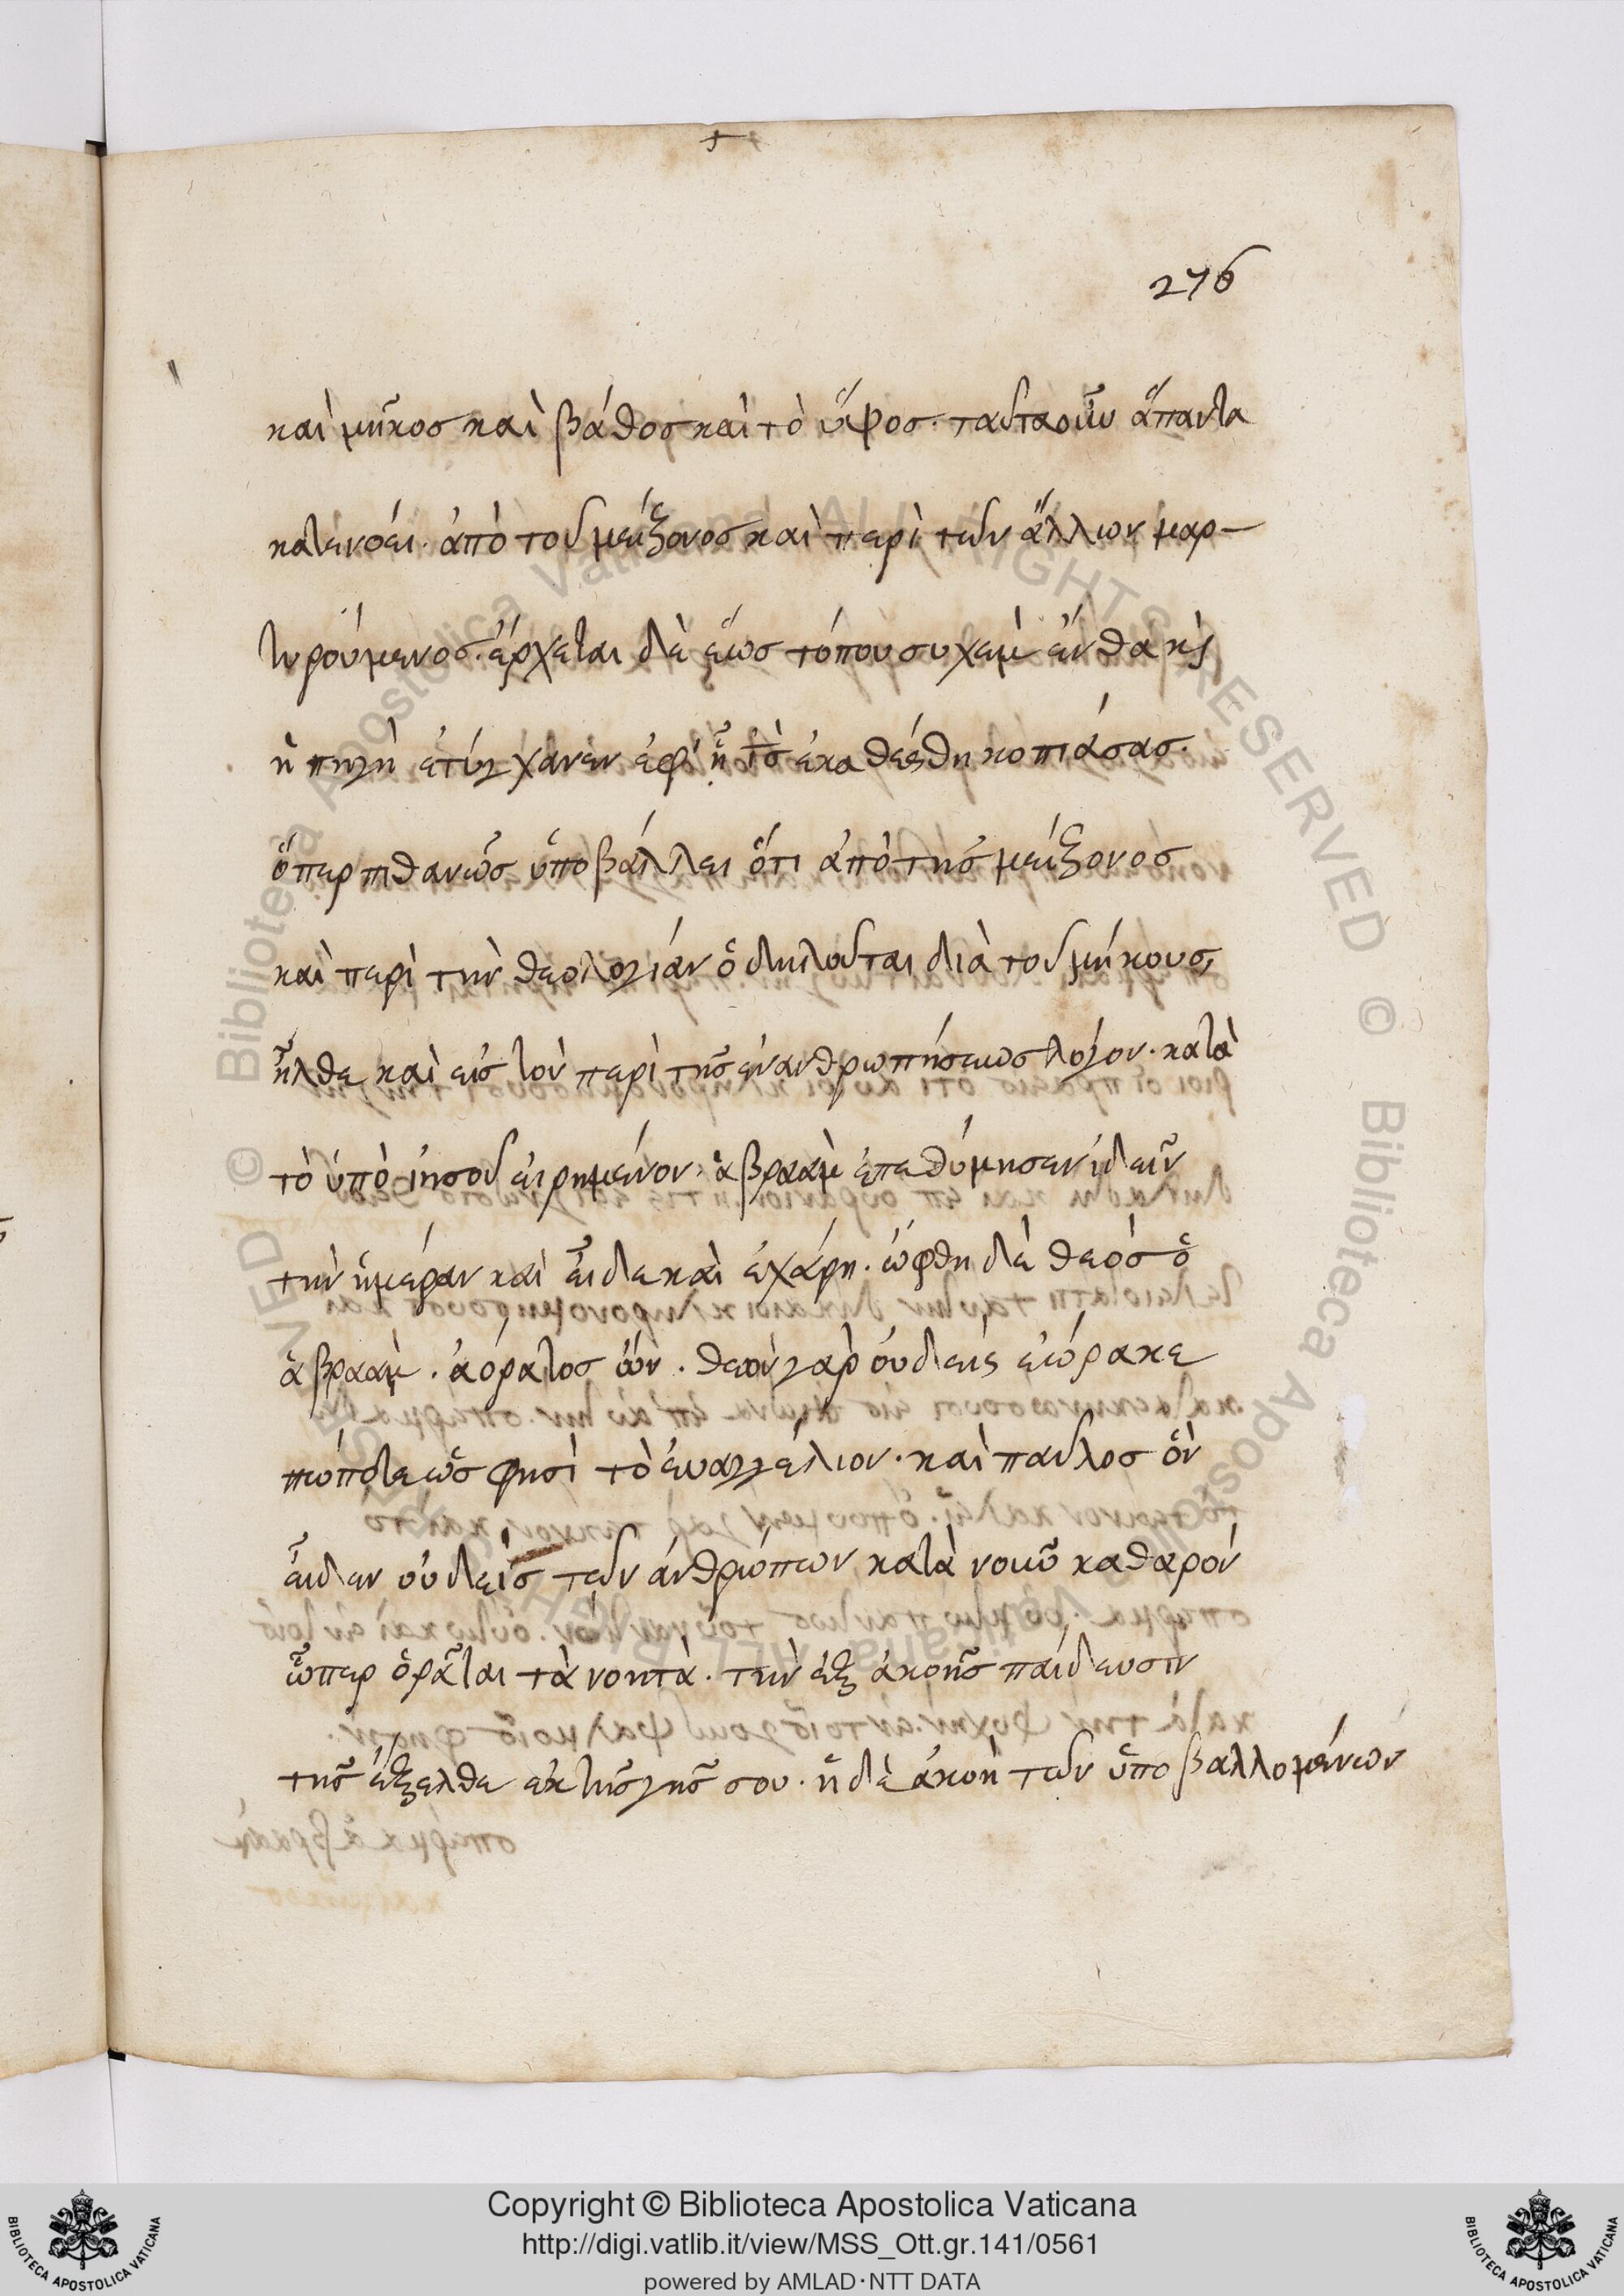 276
καὶ μῆκος καὶ βάθος καὶ τὸ ὕψος· ταῦτα οὖν ἅπαντα
κατενόει· ἀπὸ τοῦ μείζονος καὶ περὶ τῶν ἄλλων μαρ-
τυρούμενος· ἔρχεται δὲ ἕως τόπου συχεμ ἔνθα κ(αὶ)
ἡ πηγὴ ἐτύγχανεν ἐφ' ἧ ἐκαθέσθη κοπιάσας·
ὅπερ πιθανῶς ὑποβάλλει ὅτι ἀπὸ τῆς μείζονος
καὶ περὶ τὴν θεολογίαν ὃ δηλοῦται διὰ τοῦ μήκους,
ἦλθε καὶ εἰς τὸν περὶ τῆς ἐνανθρωπήσεως λόγον· κατὰ
τὸ ὑπὸ ἰησοῦ εἰρημένον, ἁβραὰμ ἐπεθύμησεν ἰδεῖν
τὴν ἡμέραν καὶ εἶδε καὶ ἐχάρη· ὤφθη δὲ θεὸς ὁ
ἁβραὰμ· ἀόρατος ὢν· θεὸν γὰρ οὐδεὶς ἑώρακε
πώποτε ὥς φησὶ τὸ ἐυαγγέλιον· καὶ παῦλος ὃν
εἶδεν οὐδεὶς τῶν ἀνθρώπων κατὰ νοῦν καθαρὸν
ὧπερ ὁρᾶται τὰ νοητὰ· τὴν ἐξ ἀκοῆς παίδευσιν
τῆς ἔξελθε ἐκ τῆς γῆς σου· ἡ δὲ ἀκοὴ τῶν ὑποβαλλομένων
Copyright © Biblioteca Apostolica Vaticana
http://digi.vatlib.it/view/MSS_Ott.gr.141/0561
powered by AMLAD·NTT DATA